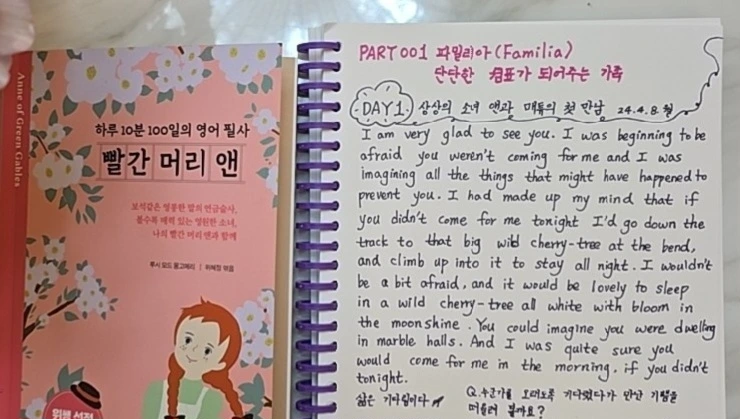 Anne of Green Gables
하루 10분 100일의 영어 필사
빨간 머리 앤
보석같은 영롱한 말의 연금술사,
볼수록 매력 있는 영원한 소녀,
나의 빨간 머리 앤과 함께
루시 모드 몽고메리 | 위혜정 엮음
위혜정
PART 001 파밀리아 (Familia)
단단한 쉼표가 되어주는 가족
DAY 1. 상상의 소녀 앤과 매튜의 첫 만남 24.4.8.월
I am very glad to see you. I was beginning to be
afraid you weren't coming for me and I was
imagining all the things that might have happened to
prevent you. I had made up my mind that if
you didn't come for me tonight I'd go down the
track to that big wild cherry-tree at the bend,
and climb up into it to stay all night. I wouldn't
be a bit afraid, and it would be lovely to sleep
in a wild cherry-tree all white with bloom in
the moonshine. You could imagine you were dwelling
in marble halls. And I was quite sure you
would come for me in the morning. if you didn't
tonight.
삶은 기다림이다
Q. 누군가를 오래도록 기다렸다가 만난 기쁨을
떠올려 볼까요?